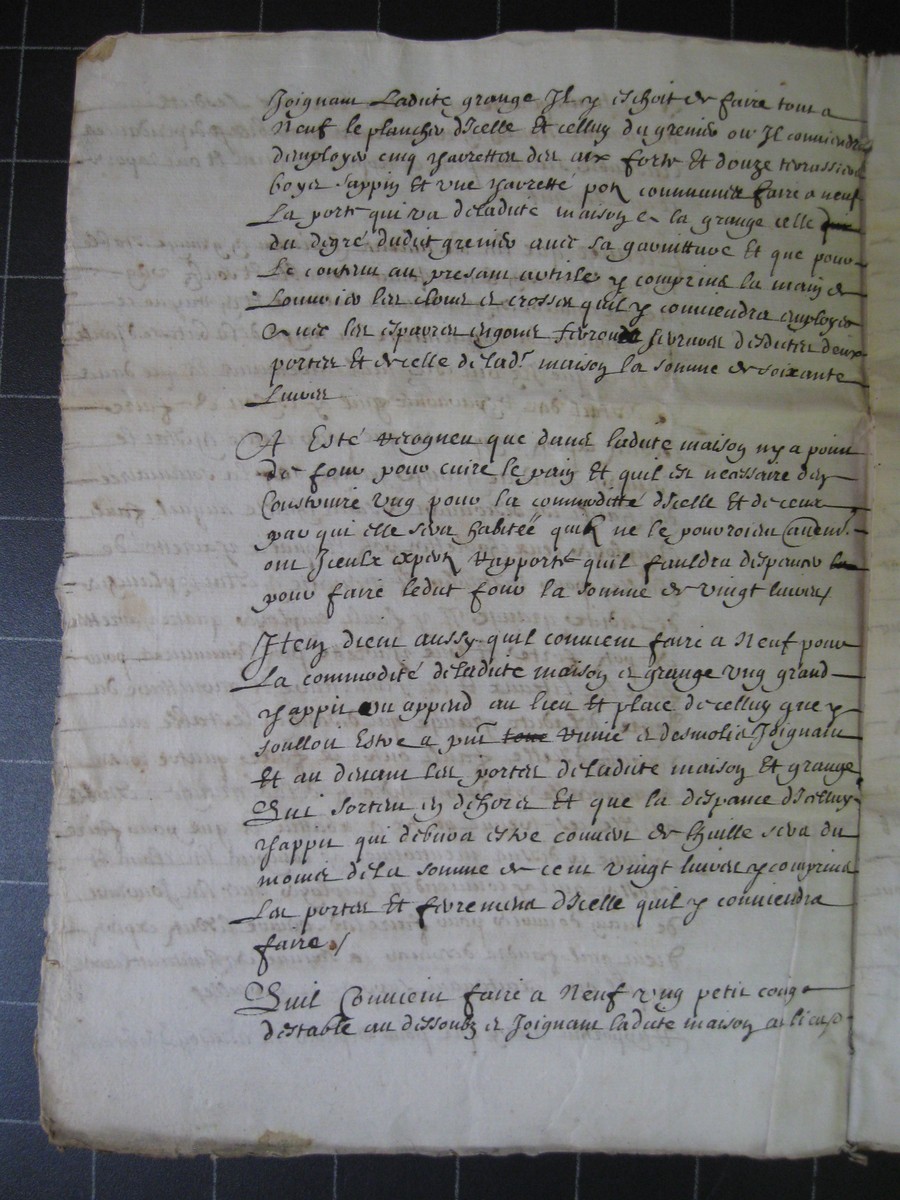 Joignant ladite grange Il y eschoit de faire tout a
Neuf le plancher d'Icelle Et celluy du grenier ou Il conviendra
d'employer cinq chavettes des aix forts Et douze
boyes sappin Et une chavette pour communer faire a neuf
La porte qui va de ladite maison en la grange celle
du degré dudit grenier avec sa garniture Et que pour
Le contenu au presant article y comprins la main de
L'ouvrier les cloux et crosses quil y conviendra employer
Avec les esparres engons serrures desdites deux
portes Et de celle de lad.e maison la somme de soixante
Livres
A Esté recogneu que dans ladite maison ny a point
de four pour cuire le pain Et quil est necessaire d'en
Construire ung pour la commodité d'Icelle Et de ceux
par qui elle sera habitéé quilz ne le pourroient
ont Iceulx expertz Rapporté quil fauldra despancer
pour faire ledit four la somme de vingt livres /
Item dient aussy quil convient faire a Neuf pour
La commodité de ladite maison et grange ung grand
chappit ou append au lieu Et place de celluy que y
soulloit Estre a pnt ruiné et desmolie Joignant
Et au devant les portes de ladite maison Et grange
Qui sortent en dehors Et que la despance d'Icelluy
chappit qui debvra estre couvert de thuille sera du
moins de la somme de cent vingt livres y comprins
Les portes Et serrements d'Icelle quil y conviendra
faire /
Quil Convient faire a Neuf ung petit
d'estable au dessoubz et Joignant ladite maison